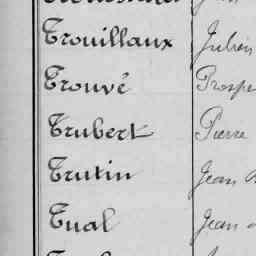 Trouillaux Julien
Trouvé Prospe
Trubert Pierre
Trutin Jean
Tual Jean